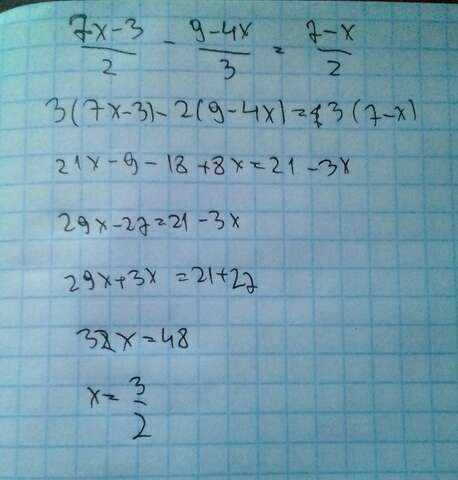 7x-3/2 - 9-4x/3 = 7-x/2
3(7x-3)-2(9-4x)=3(7-x)
21x-9-18+8x=21-3x
29x-27=21-3x
29x+3x=21+27
32x=48
x=3/2